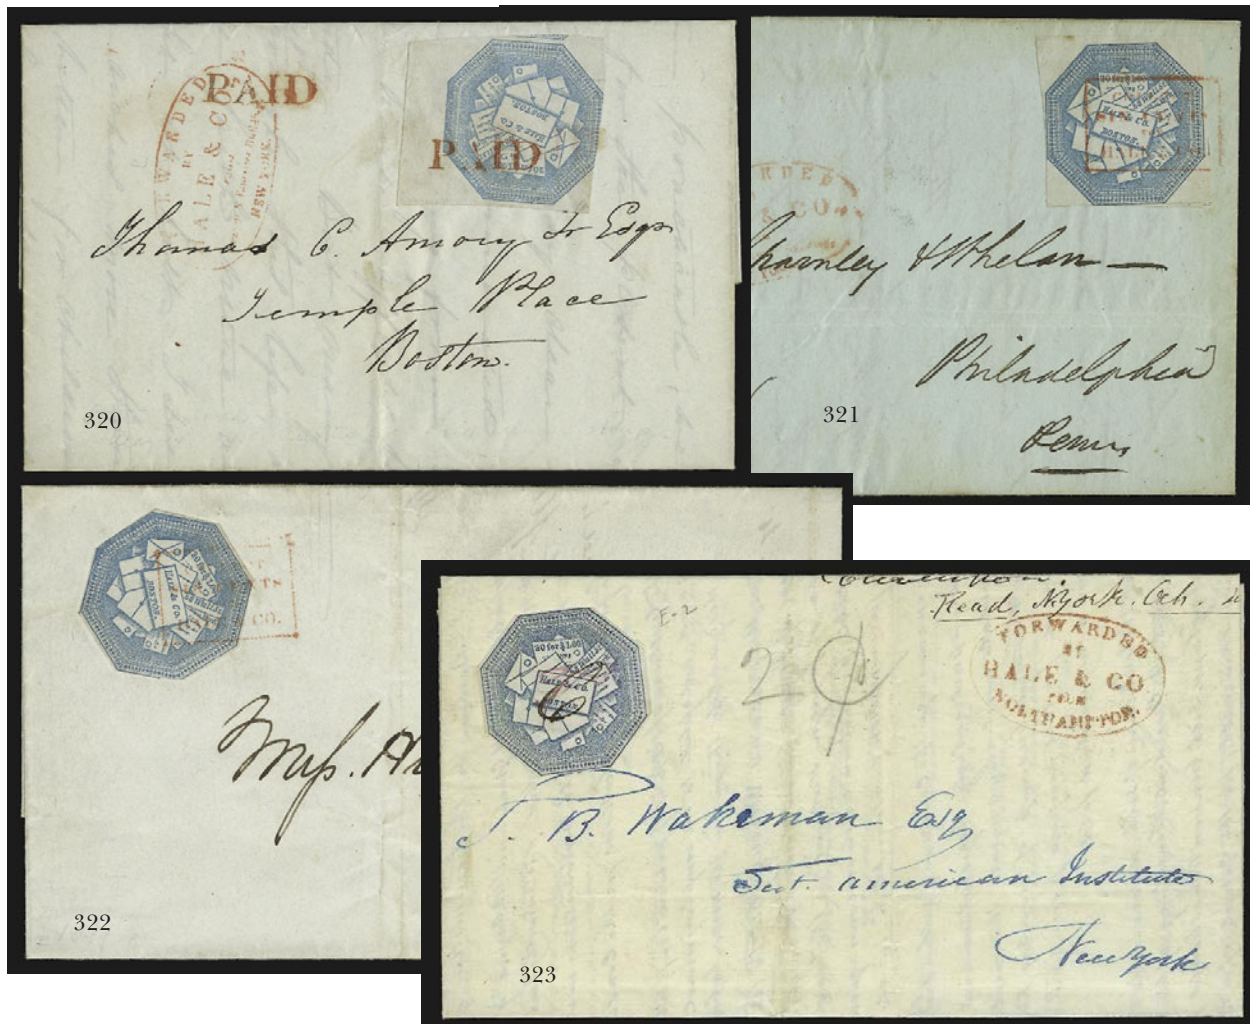 PAID
FORWARDED
BY
HALE & CO
NEW YORK.
HALE & CO.
BOSTON.
PAID
Thomas C. Amory Jr Esqr
Temple Place
Boston.
320
HALE & CO.
BOSTON
& CO
& Whelan —
Philadelphia
Penn
321
HALE & CO.
BOSTON.
CO.
Miss.
322
Read, NYork. Oct.
FORWARDED
BY
HALE & CO
FROM
NORTHAMPTON.
E-2
20 for $1.00
HALE & CO.
BOSTON
6
2
T. B. Wakeman Esq
Sect. American Institute
New York
323